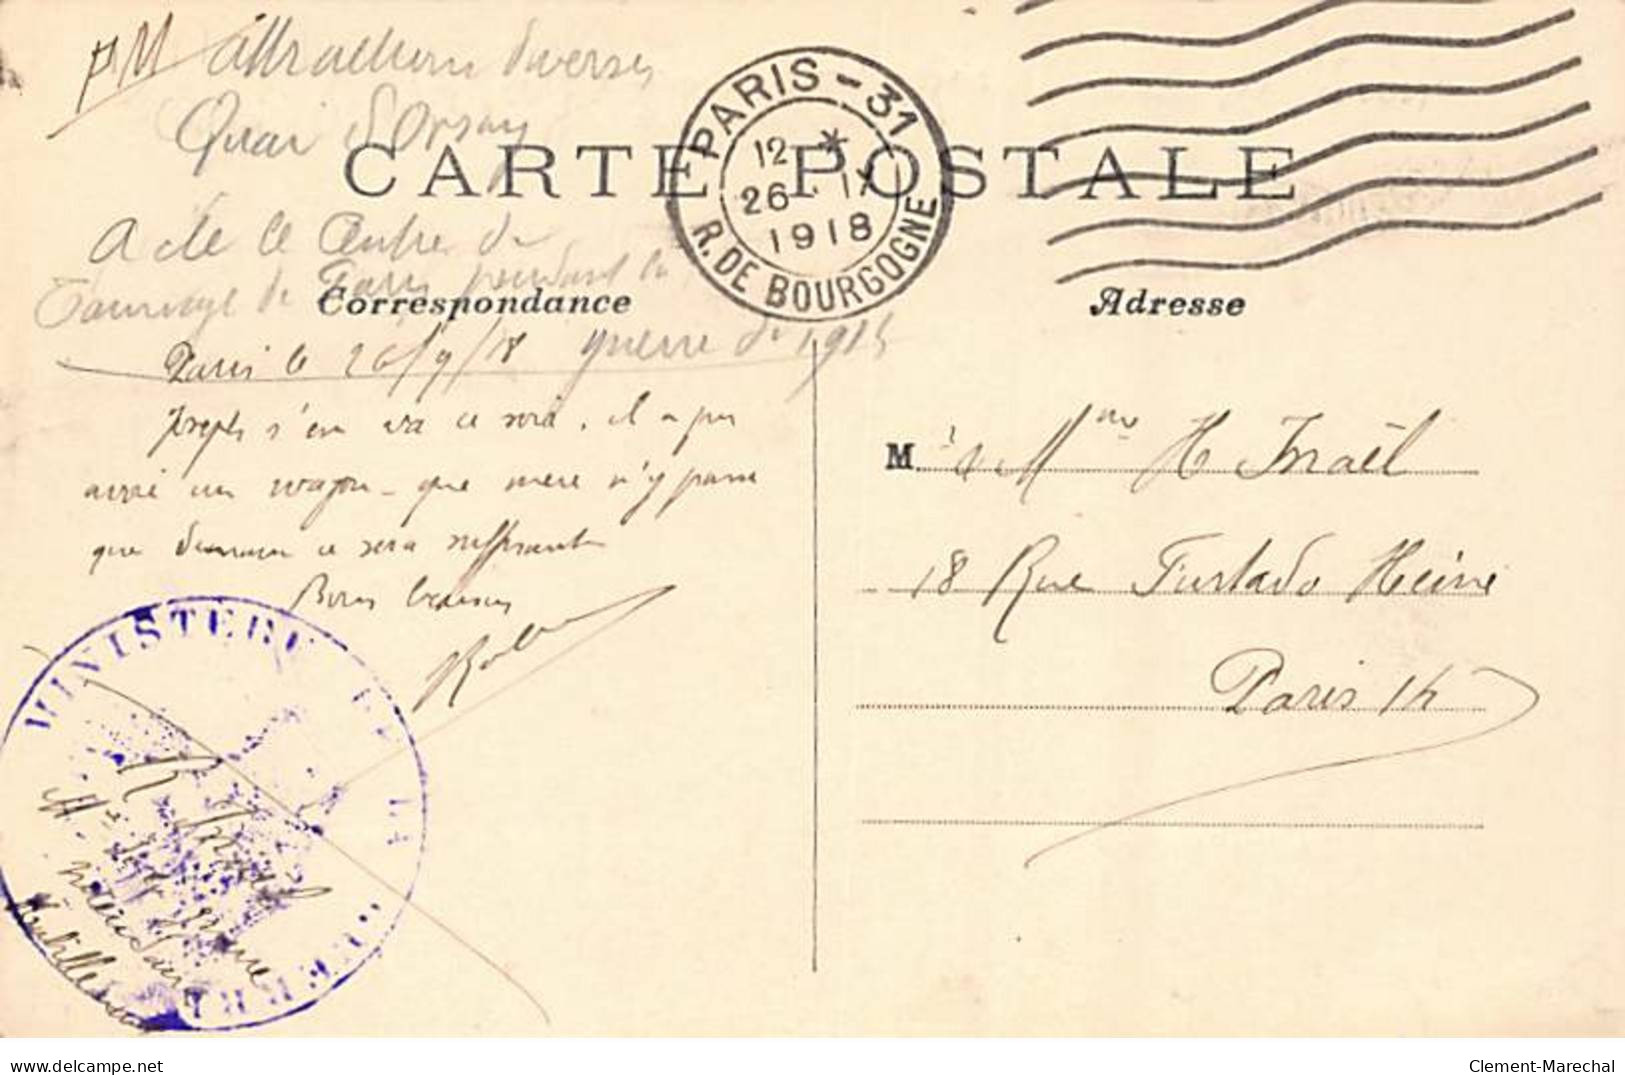 PM attractions diverses
Quai d'Orsay
CARTE POSTALE
PARIS - 31
12 *
26 . IX
1918
R. DE BOURGOGNE
le Centre de
de Paris pendant la
guerre de 191
Correspondance
Adresse
Paris le 26/9/18
Joseph s'en va ce soir, il a pu
avoir un wagon - que mere n'y passe
que demain ce sera suffisant
Bons baisers
M
Mme H Israël
18 Rue Furtado Heine
Paris 14
MINISTERE DE LA GUERRE
R Israël
delcampe.net
Clement-Marechal